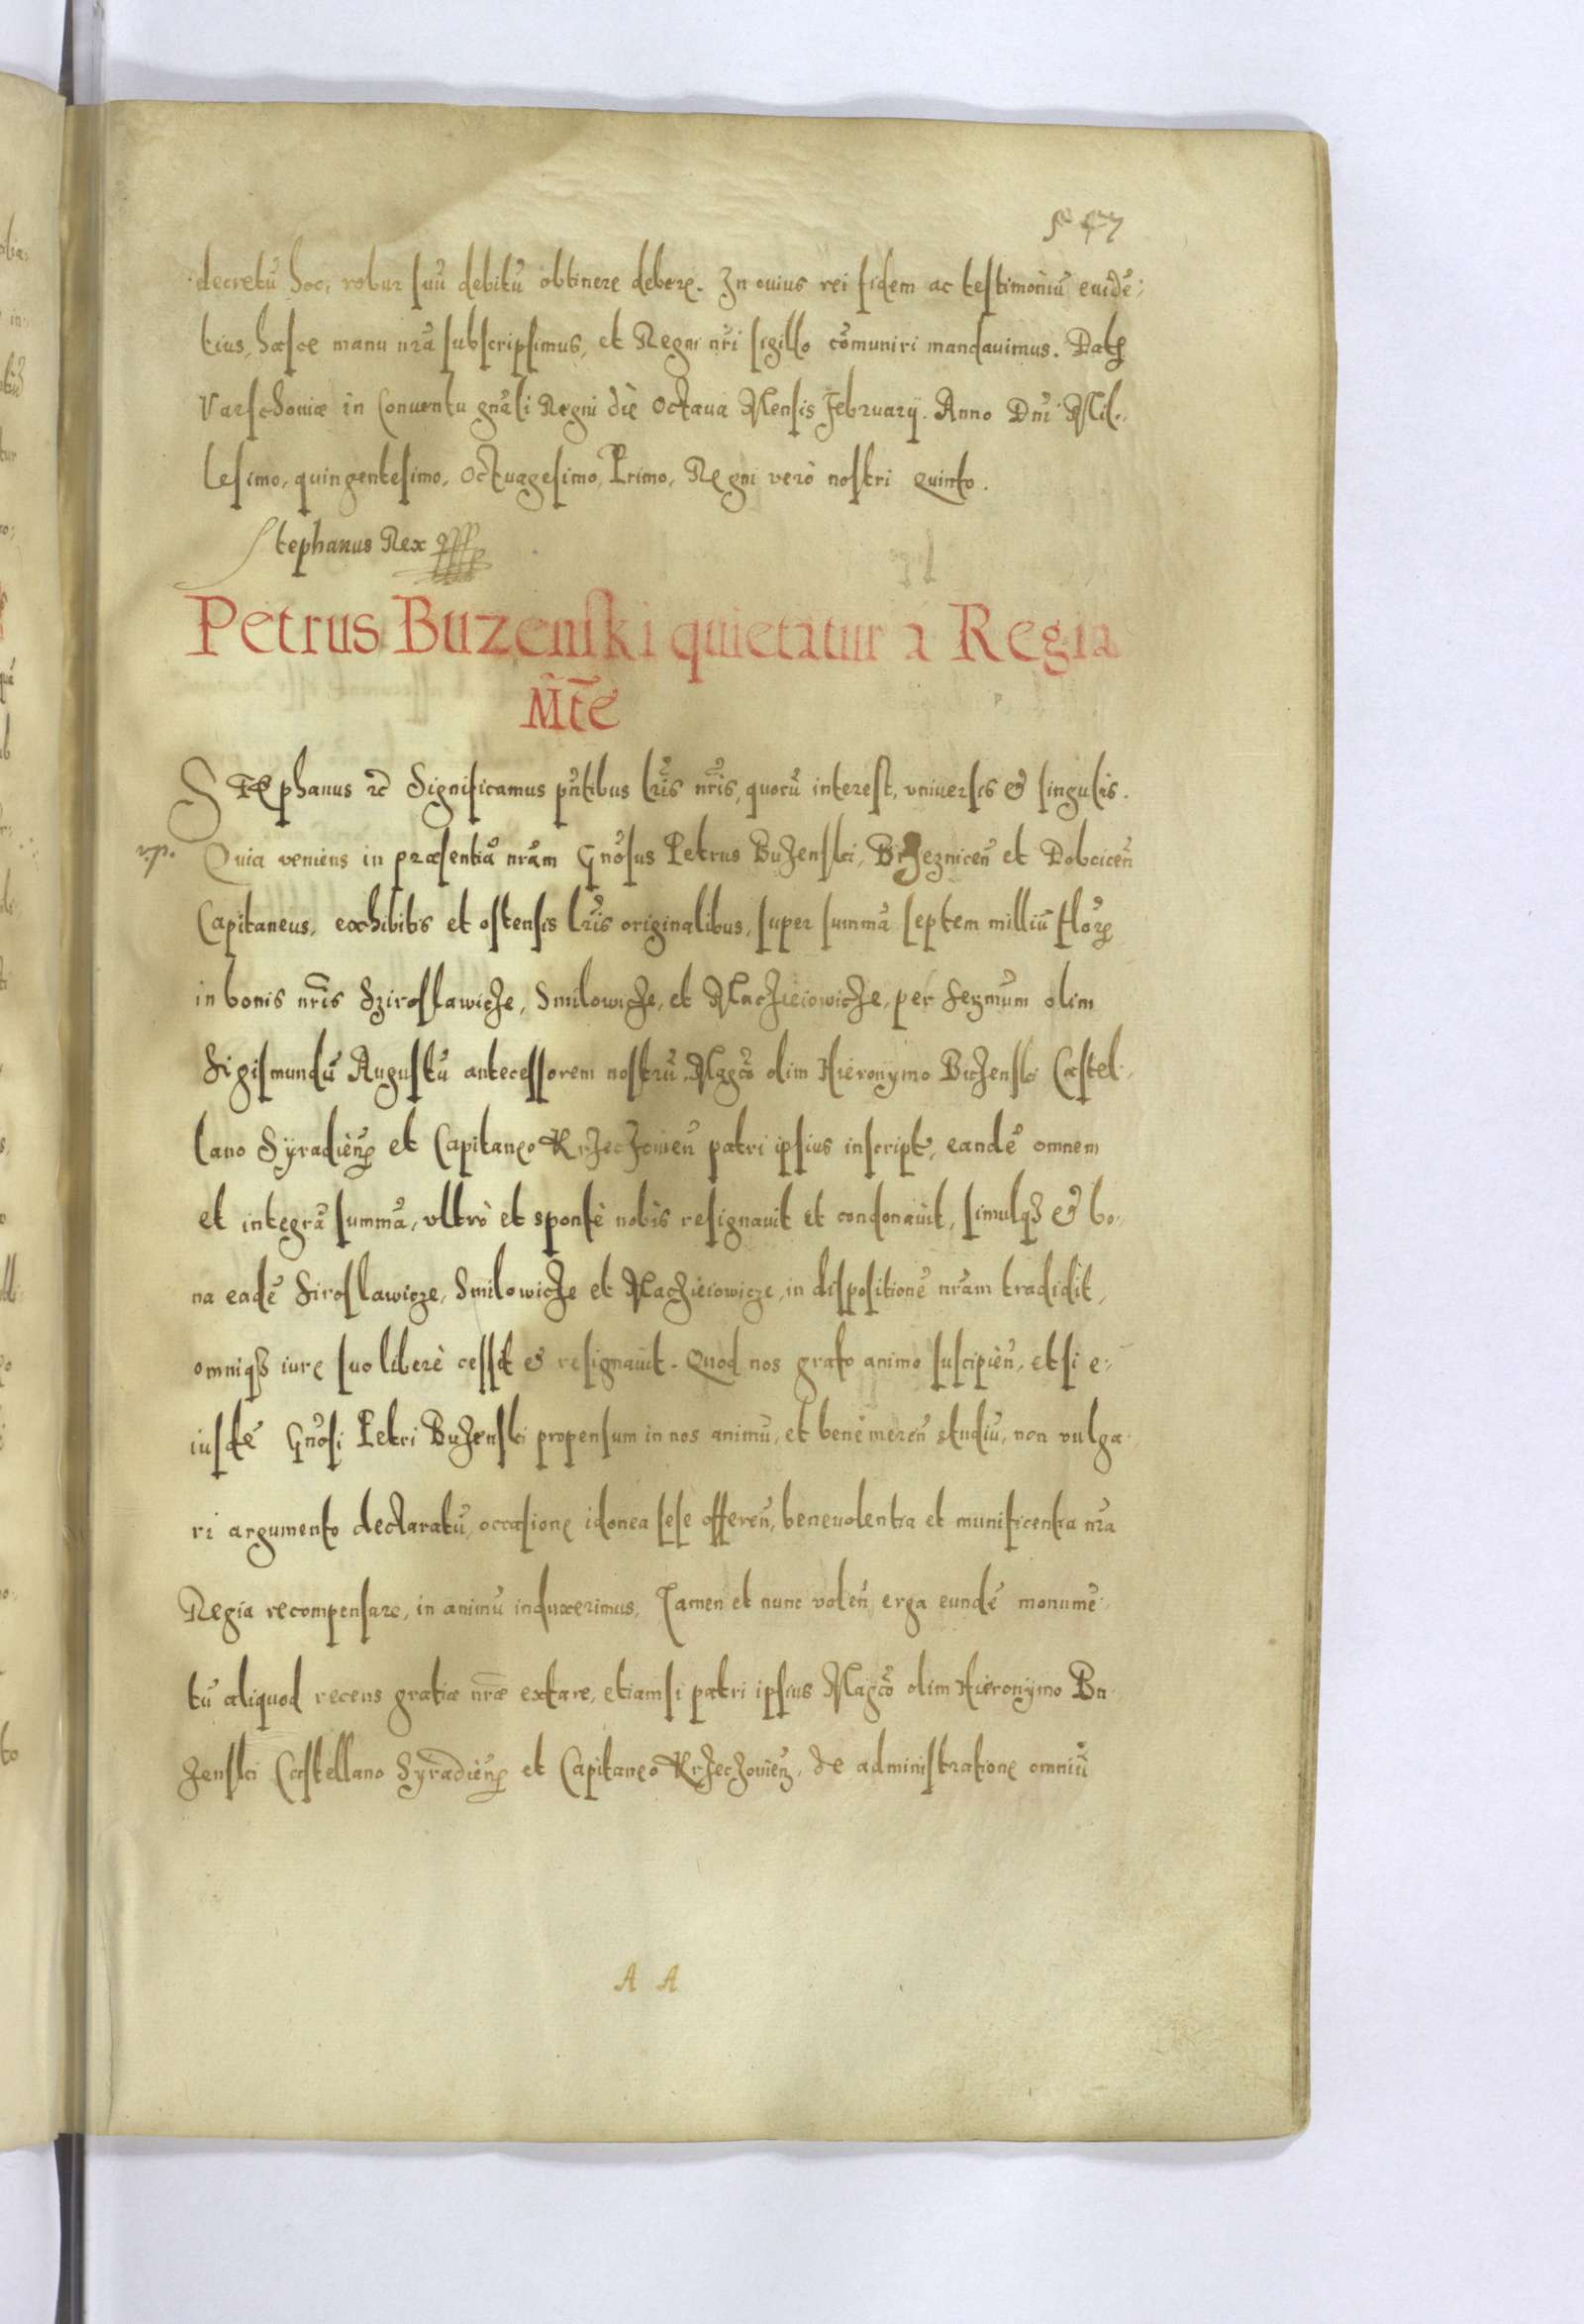 decretũ hoc, robur suũ debitũ obtinere debere. In cuius rei fidem ac testimoniũ euidẽ:
tius, hasce manu nr̃a subscripsimus, et Regni nr̃i sigillo cõmuniri mandauimus. Dat̃
Varschouiæ in Conuentu gnãli Regni die Octaua Mensis February. Anno Dnĩ Mil:
lesimo, quingentesimo, Octuagesimo, Primo, Regni verò nostri Quinto.
Stephanus Rex
Petrus Buzenski quietatur a Regia
M̃tẽ
STephanus rc̃ Significamus pñtibus lr̃is nr̃is, quorũ interest, vniuersis & singulis.
Quia veniens in præsentiã nrãm Gnõsus Petrus Buzenski, Brzezniceñ et Dobciceñ
Capitaneus, exhibitis et ostensis lr̃is originalibus, super summã septem milliũ flor̃
in bonis nr̃is Sziroslawicze, Smilowicze, et Maczieiowicze, per Sermum olim
Sigismundũ Augustũ antecessorem nostrũ, Magcõ olim Hieronymo Buzenski Castel:
lano Syradień et Capitaneo Krzeczouień patri ipsius inscript, eandẽ omnem
et integrã summã, vltrò et spontè nobis resignauit et condonauit, simulqз & bo:
na eadẽ Siroslawicze, Smilowicze et Maczieiowicze, in dispositionẽ nrãm tradidit,
omniqз iure suo liberè cessit & resignauit. Quod nos grato animo suscipień, etsi e:
iusdẽ Gnõsi Petri Buzenski propensum in nos animũ, et benemereñ studiũ, non vulga
ri argumento declaratũ, occasione idonea sese offereñ, beneuolentia et munificentia nr̃a
Regia recompensare, in animũ induxerimus, Tamen et nunc voleñ erga eundẽ monumẽ:
tũ aliquod recens gratiæ nr̃æ extare, etiamsi patri ipsius Magcõ olim Hieronymo Bu:
zenski Castellano Syradień et Capitaneo Krzeczouień, de administratione omniũ
A A